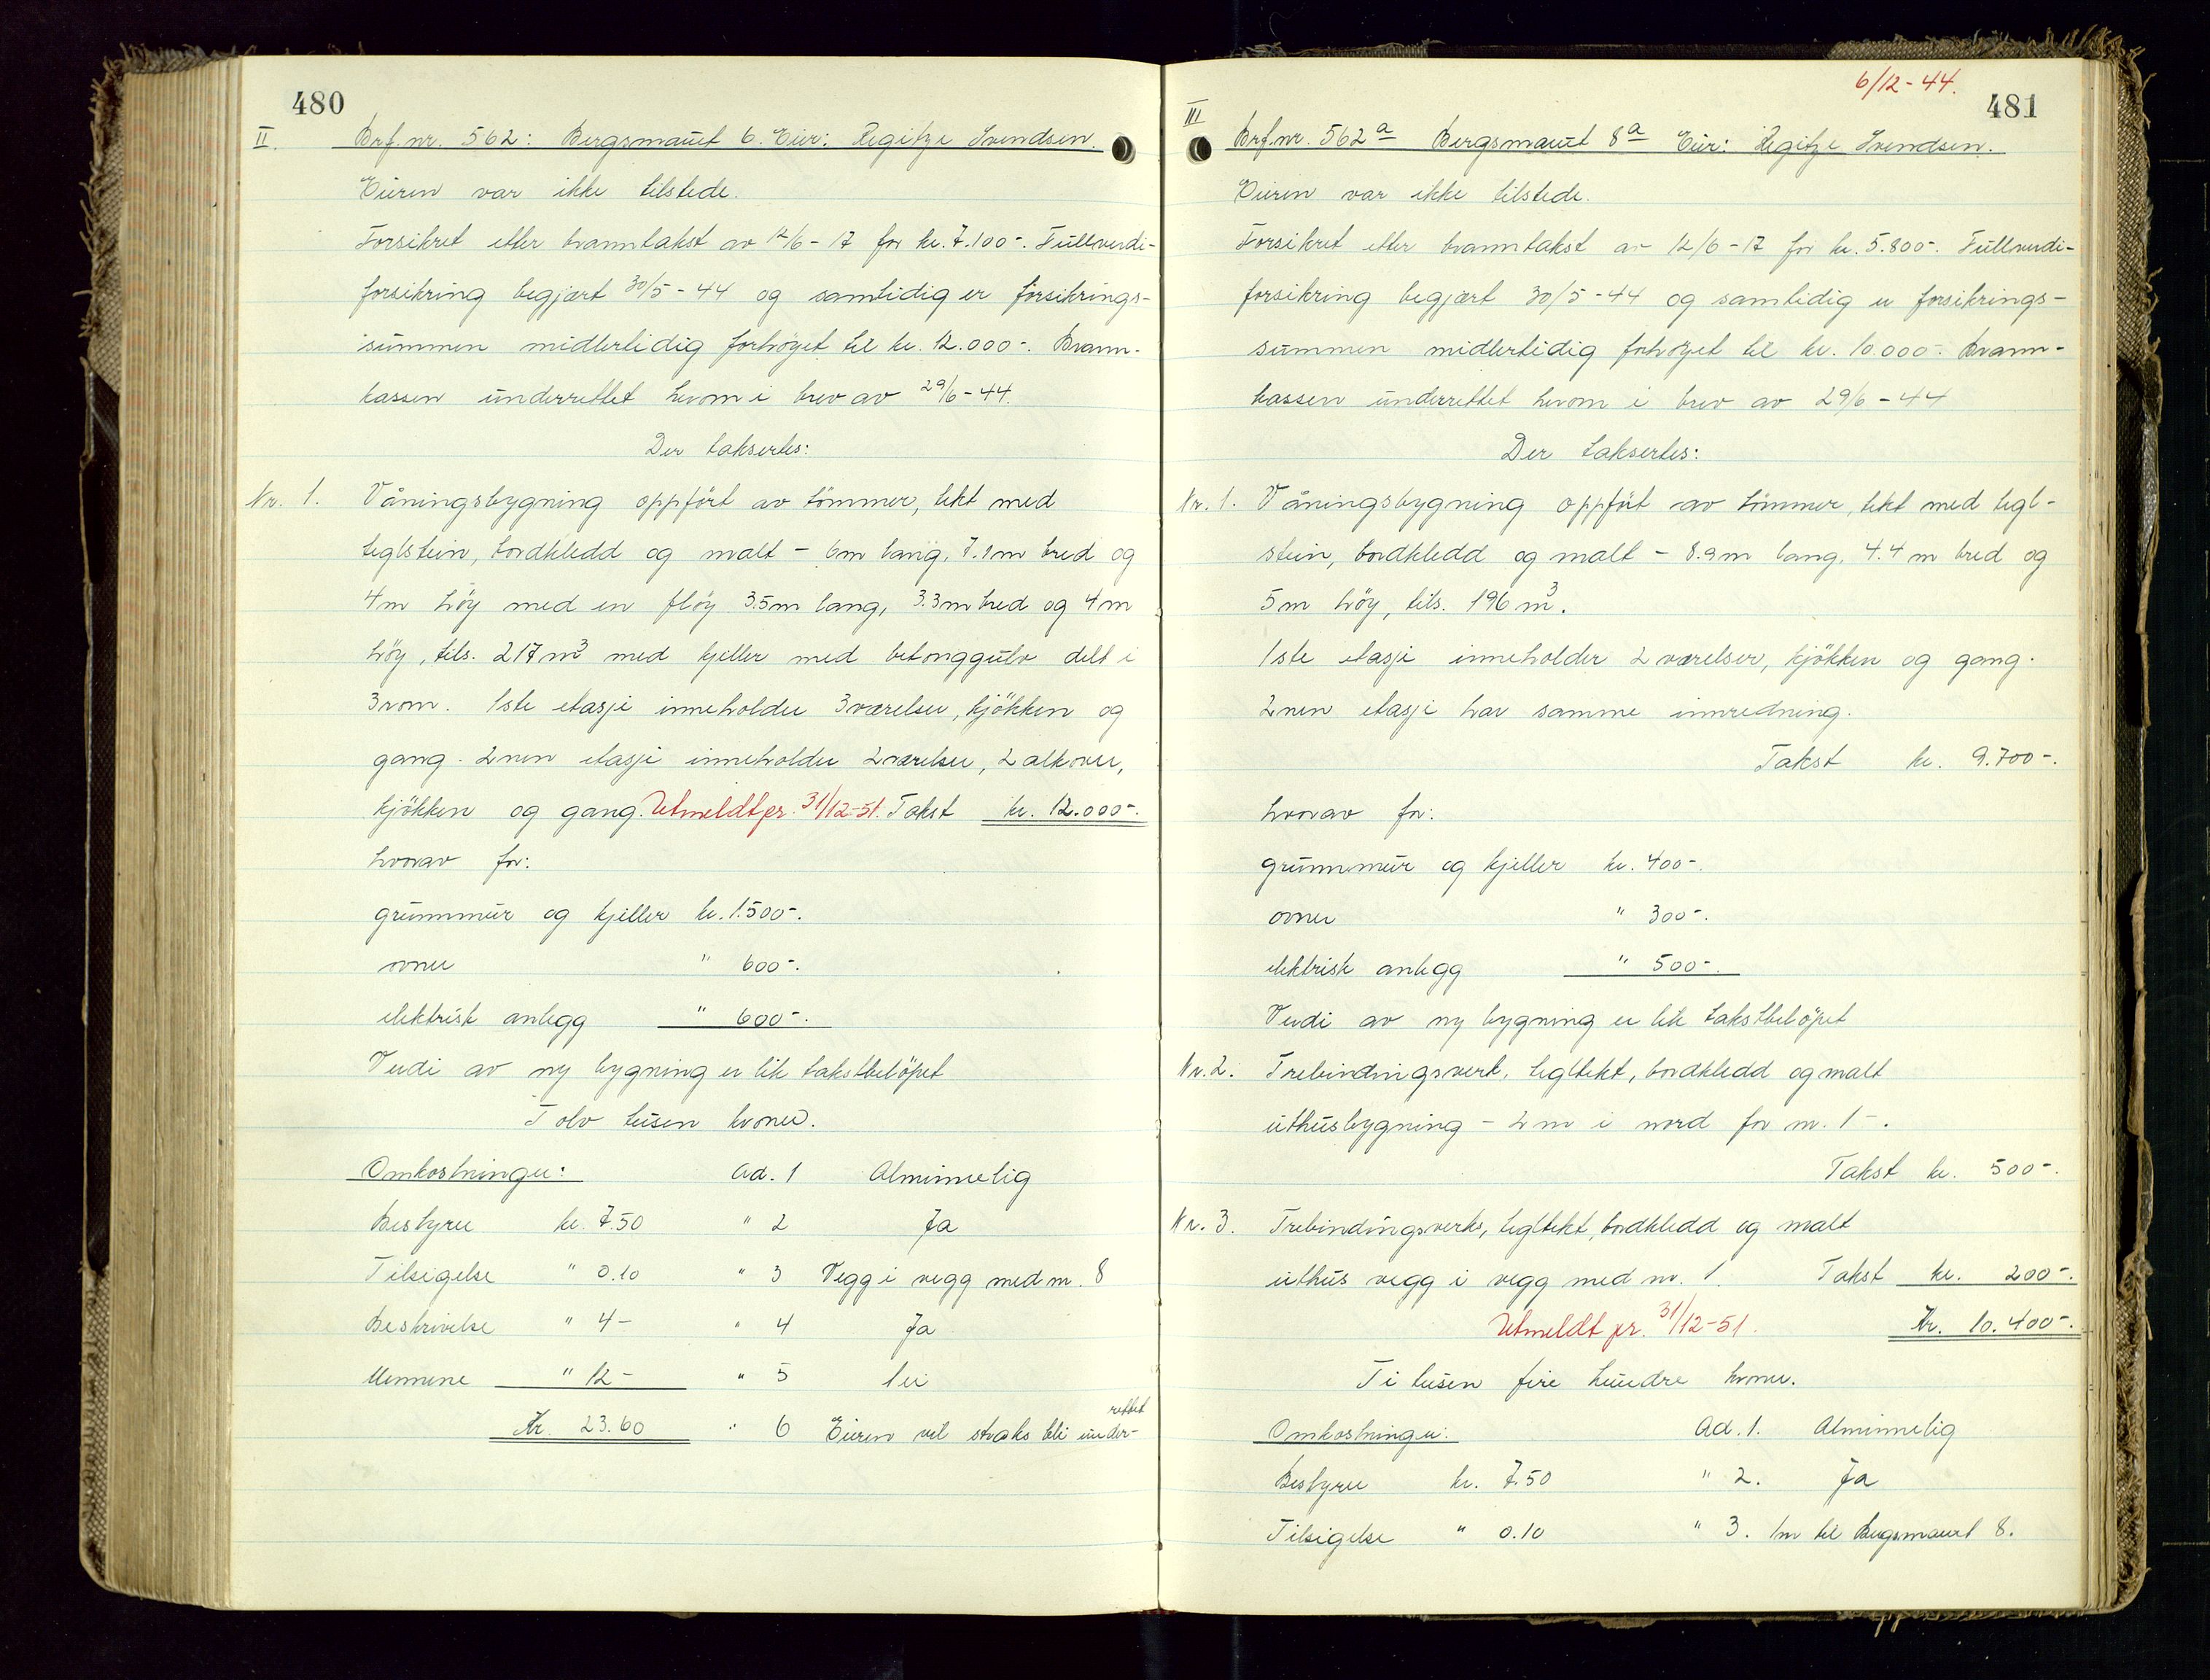 480
II. Brf.nr. 562: Bergsmauet 6. Eier: Regitze Svendsen.
Eieren var ikke tilstede.
Forsikret etter branntakst av 12/6-17 for kr. 7.100-. Fullverdi-
forsikring begjært 30/5-44 og samtidig er forsikrings-
summen midlertidig forhöyet til kr. 12.000-. Brann-
kassen underrettet herom i brev av 29/6-44.
Der taksertes:
Nr. 1. Våningsbygning oppfört av tömmer, tekt med
teglstein, bordkledd og malt - 6m lang, 7.1m bred og
4m höy med en flöy 3.5m lang, 3.3m bred og 4m
höy, tils. 217 m3 med kjeller med betonggulv delt i
3 rom. 1ste etasje inneholder 3 værelser, kjökken og
gang. 2nen etasje inneholder 2 værelser, 2 alkover,
kjökken og gang. Utmeldt pr. 31/12-51. Takst kr. 12.000-.
hvorav for:
grunnmur og kjeller kr. 1.500-.
ovner " 600-.
elektrisk anlegg " 600-.
Verdi av ny bygning er lik takstbelöpet
Tolv tusen kroner.
Omkostninger: Ad. 1 Alminnelig
Bestyrer kr. 7.50 " 2 Ja
Tilsigelse " 0.10 " 3 Vegg i vegg med nr. 8
Beskrivelse " 4- " 4 Ja
Mennene " 12- " 5 Nei
Kr. 23.60 " 6 Eieren vil straks bli under-
rettet
6/12-44.
481
III Brf.nr. 562a Bergsmauet 8a Eier: Regitze Svendsen.
Eieren var ikke tilstede.
Forsikret etter branntakst av 12/6-17 for kr. 5.800-. Fullverdi-
forsikring begjært 30/5-44 og samtidig er forsikrings-
summen midlertidig forhöyet til kr. 10.000-. Brann-
kassen underrettet herom i brev av 29/6-44
Der taksertes:
Nr. 1. Våningsbygning oppfört av tömmer, tekt med tegl-
stein, bordkledd og malt - 8.9m lang, 4.4m bred og
5m höy, tils. 196 m3.
1ste etasje inneholder 2 værelser, kjökken og gang.
2nen etasje har samme innredning.
Takst kr. 9.700-.
hvorav for:
grunnmur og kjeller kr. 400-.
ovner " 300-.
elektrisk anlegg " 500-.
Verdi av ny bygning er lik takstbelöpet
Nr. 2. Trebindingsverk, tegltekt, bordkledd og malt
uthusbygning - 2m i nord for nr. 1-.
Takst kr. 500-.
Nr. 3. Trebindingsverks, tegltekt, bordkledd og malt
uthus vegg i vegg med nr. 1. Takst kr. 200-.
Utmeldt pr. 31/12-51. Kr. 10.400-.
Ti tusen fire hundre kroner.
Omkostninger: Ad. 1. Alminnelig
Bestyrer kr. 7.50 " 2. Ja
Tilsigelse " 0.10 " 3. 1m til Bergsmauet 8.